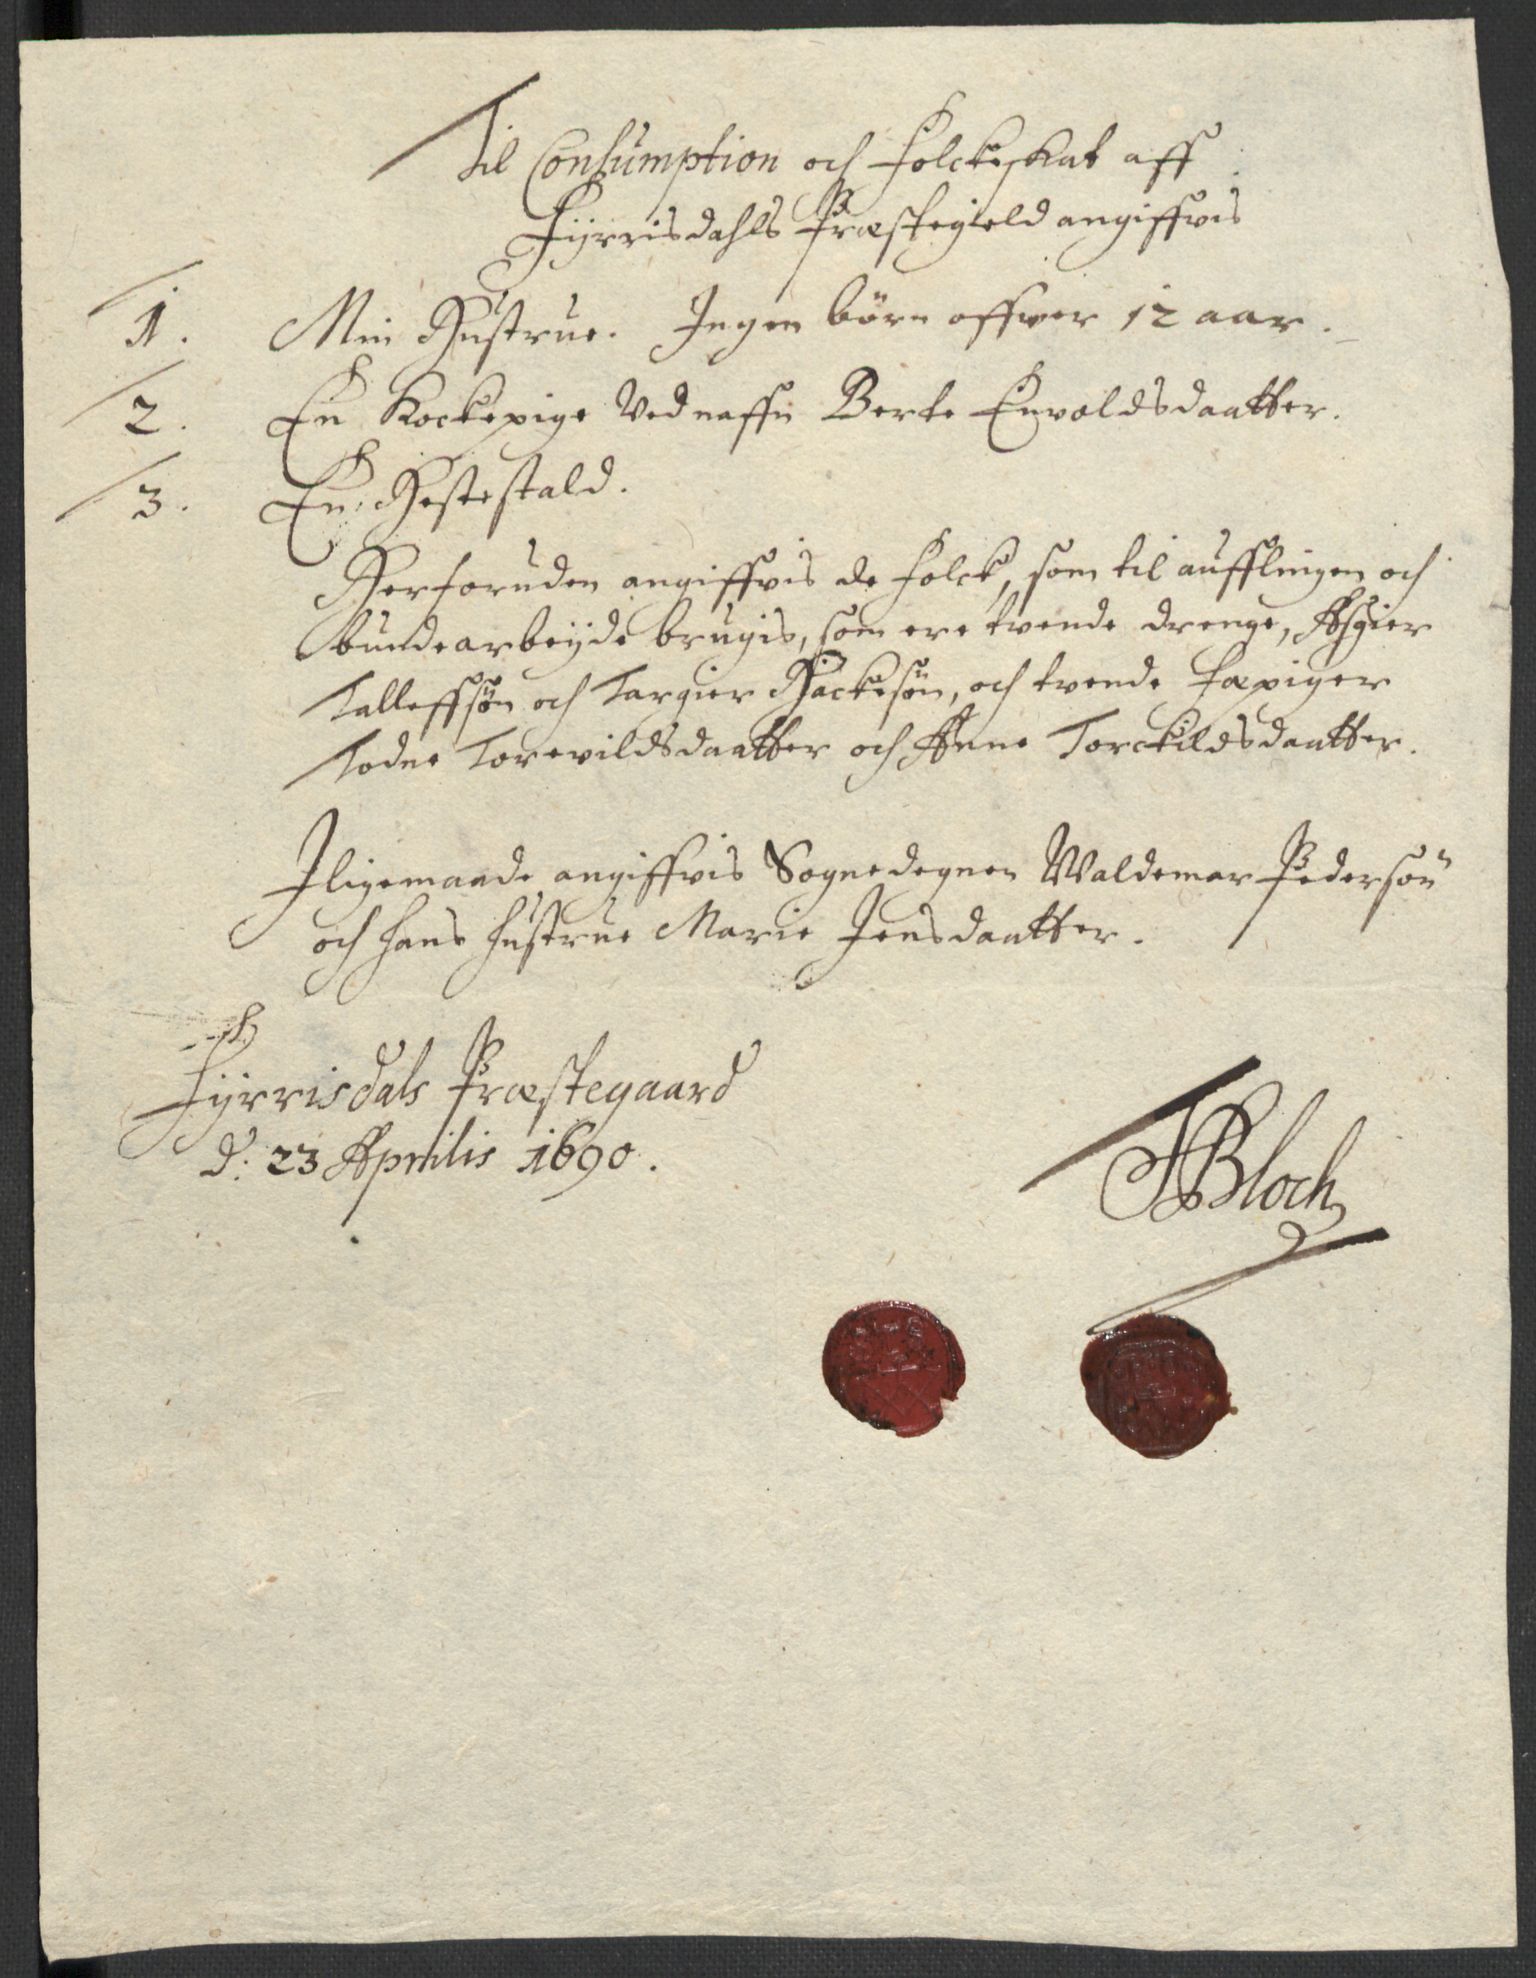 Til Consumption och Folckeskat aff
Fijrrisdahls Præstegield angiffvis
1. Min Hustrue. Ingen børn offver 12 aar.
2. En Kockepige ved naffn Berte Envoldsdaatter.
3. En Hestestald.
Herforuden angiffvis de folck, som til aufflingen och
bundearbeijde brugis, som ere tvende drenge, Asgier
Talleffsøn och Targier Hackesøn, och tvende fæpiger
Todne Torevildsdaatter och Anne Torckildsdaatter.
Iligemaade angiffvis Sognedegnen Waldemar Pedersøn
och hans hustrue Marie Jensdaatter.
Fijrrisdals Præstegaard
d: 23 Aprilis 1690.
Bloch